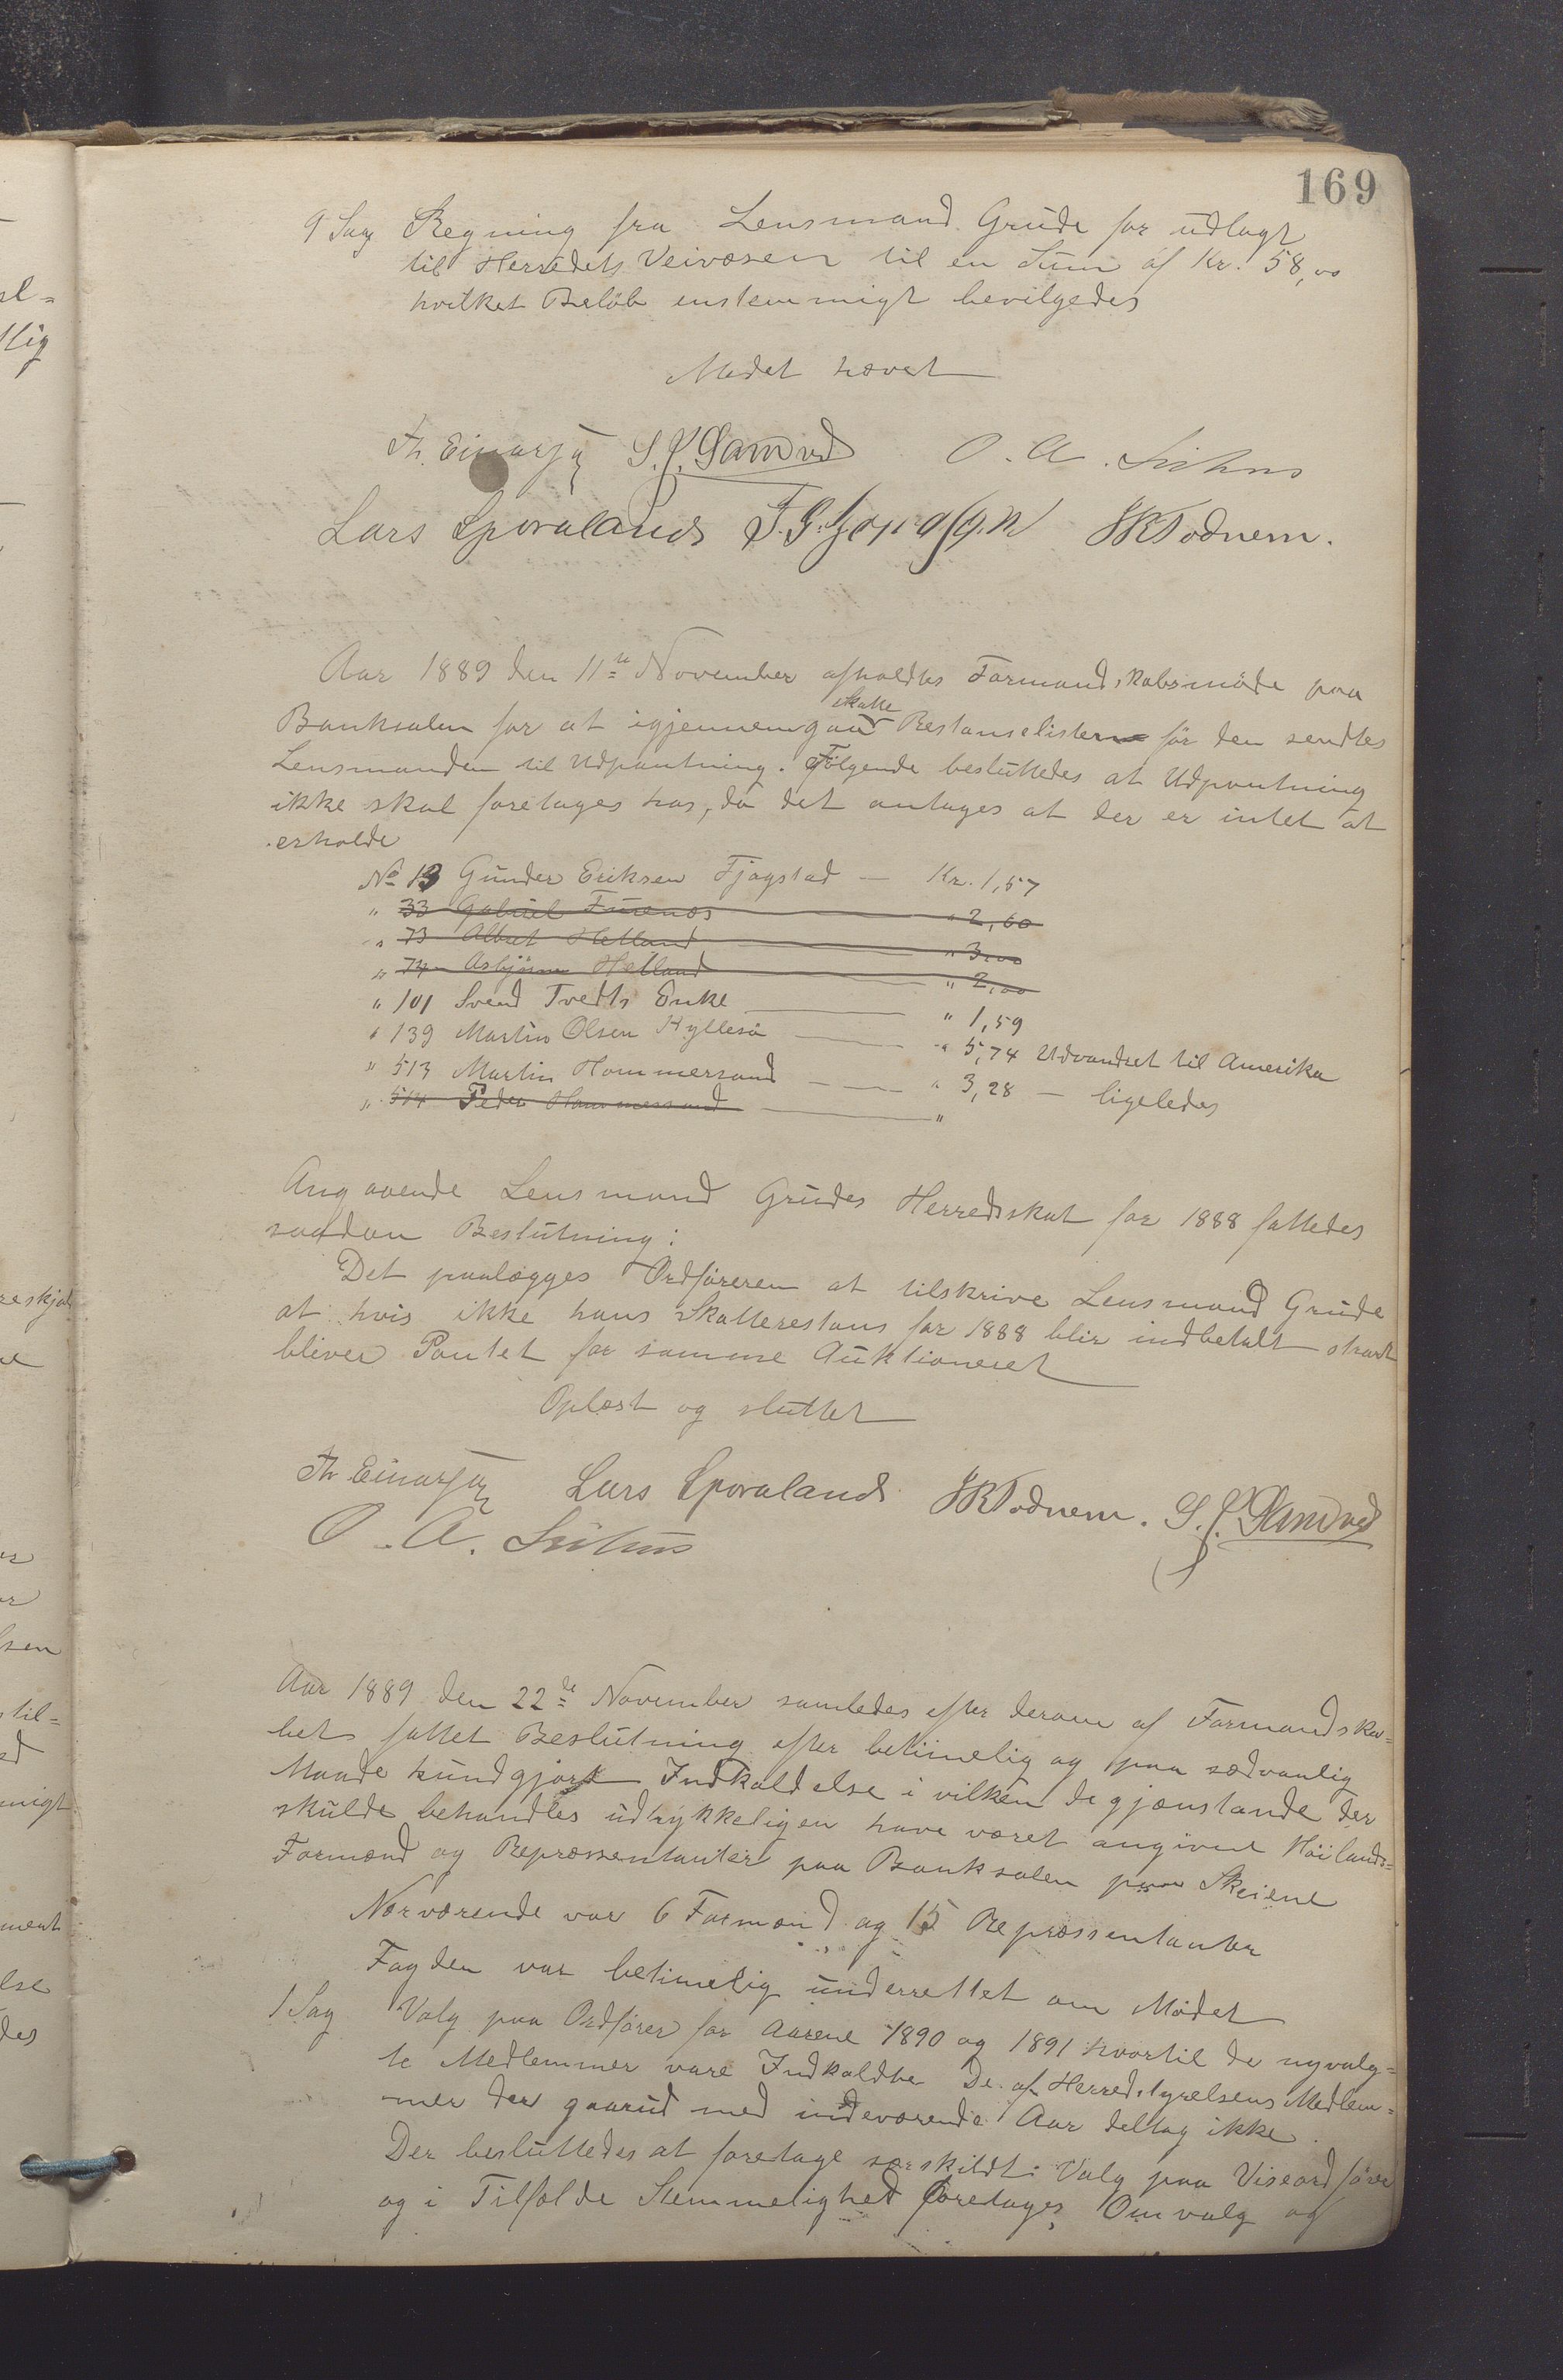 169
9 Sag Regning fra Lensmand Grude for udlagt
til Herredets Veivæsen til en Sum af Kr. 58,00
hvilket Beløb enstemmigt bevilgedes
Mødet hævet
Th. Einarsen S. J. Sandved O. A.
Lars Sporaland JRTodnem.
Aar 1889 den 11te November afholdtes Formandskabsmöde paa
Banksalen for at igjennemgaa skatte Restanselisten för den sendtes
Lensmanden til Udpantning. Følgende besluttedes at Udpantning
ikke skal foretages hos, da det antages at der er intet at
erholde
No 13 Gunder Eriksen Fjogstad — Kr. 1,57
" 33 Gabriel Furenes " 2,60
" 73 Albret Hetland " 3,00
" 74 Asbjörn Hetland " 2,00
" 101 Svend Tvedts Enke " 1,59
" 139 Martin Olsen Kyllesö " 5,74 Udvandret til Amerika
" 513 Martin Hommersand " 3,28 — ligeledes
" 514 Peder Hommersand "
Angaaende Lensmand Grudes Herredsskat for 1888 fattedes
saadan Beslutning:
Det paalægges Ordføreren at tilskrive Lensmand Grude
at hvis ikke hans Skatterestans for 1888 blir indbetalt strax
bliver Pantet for samme Auktioneret
Oplæst og sluttet
Th Einarsen Lars Sporaland JRTodnem. S. J. Sandved
O. A.
Aar 1889 den 22de November samledes efter derom af Formandska=
bet fattet Beslutning efter betimelig og paa sædvanlig
Maade kundgjort Indkaldelse i vilken de gjenstande der
skulde behandles udtrykkeligen have været angivne Höilands=
Formænd og Repræssentanter paa Banksalen paa Skeiene
Nærværende var 6 Formænd og 15 Repræssentanter
Fogden var betimelig underrettet om Mödet
1 Sag Valg paa Ordförer for Aarene 1890 og 1891 hvortil de nyvalg=
te Medlemmer vare Indkaldte De af Herredstyrelsens Medlem=
mer der gaarud med indeværende Aar deltog ikke.
Der besluttedes at foretage særskildt Valg paa Viseordförer
og i Tilfælde Stemmelighed foretages Omvalg og